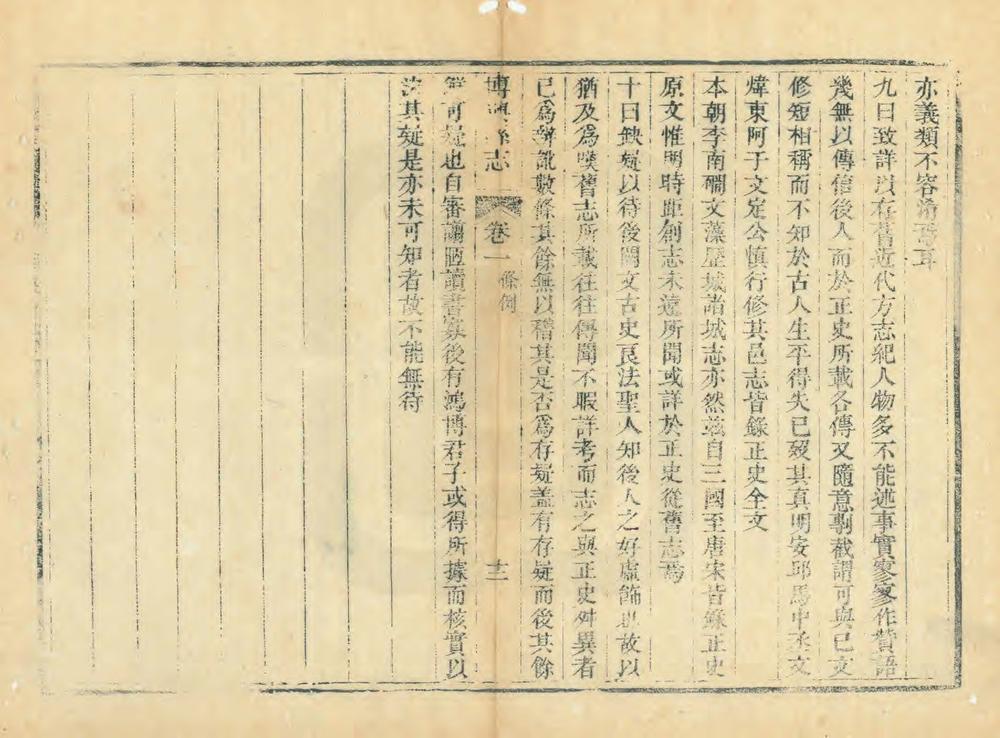 亦義類不容淆焉耳
九曰致詳以存舊近代方志紀人物多不能述事實寥寥作贊語
幾無以傳信後人而於正史所載各傳又隨意剸截謂可與己文
修短相稱而不知於古人生平得失已歿其真明安邱馬中丞文
煒東阿于文定公慎行修其邑志皆錄正史全文
本朝李南磵文藻歷城諸城志亦然茲自三國至唐宋皆錄正史
原文惟明時距創志未遠所聞或詳於正史從舊志焉
十曰缺疑以待後闕文古史良法聖人知後人之好虛飾也故以
猶及為嘆舊志所載往往傳聞不暇詳考而志之與正史舛異者
已為辨訛數條其餘無以稽其是否為存疑蓋有存疑而後其餘
博興縣志 卷一 條例 十二
無可疑也自審譾陋讀書寡後有鴻博君子或得所據而核實以
決其疑是亦未可知者故不能無待